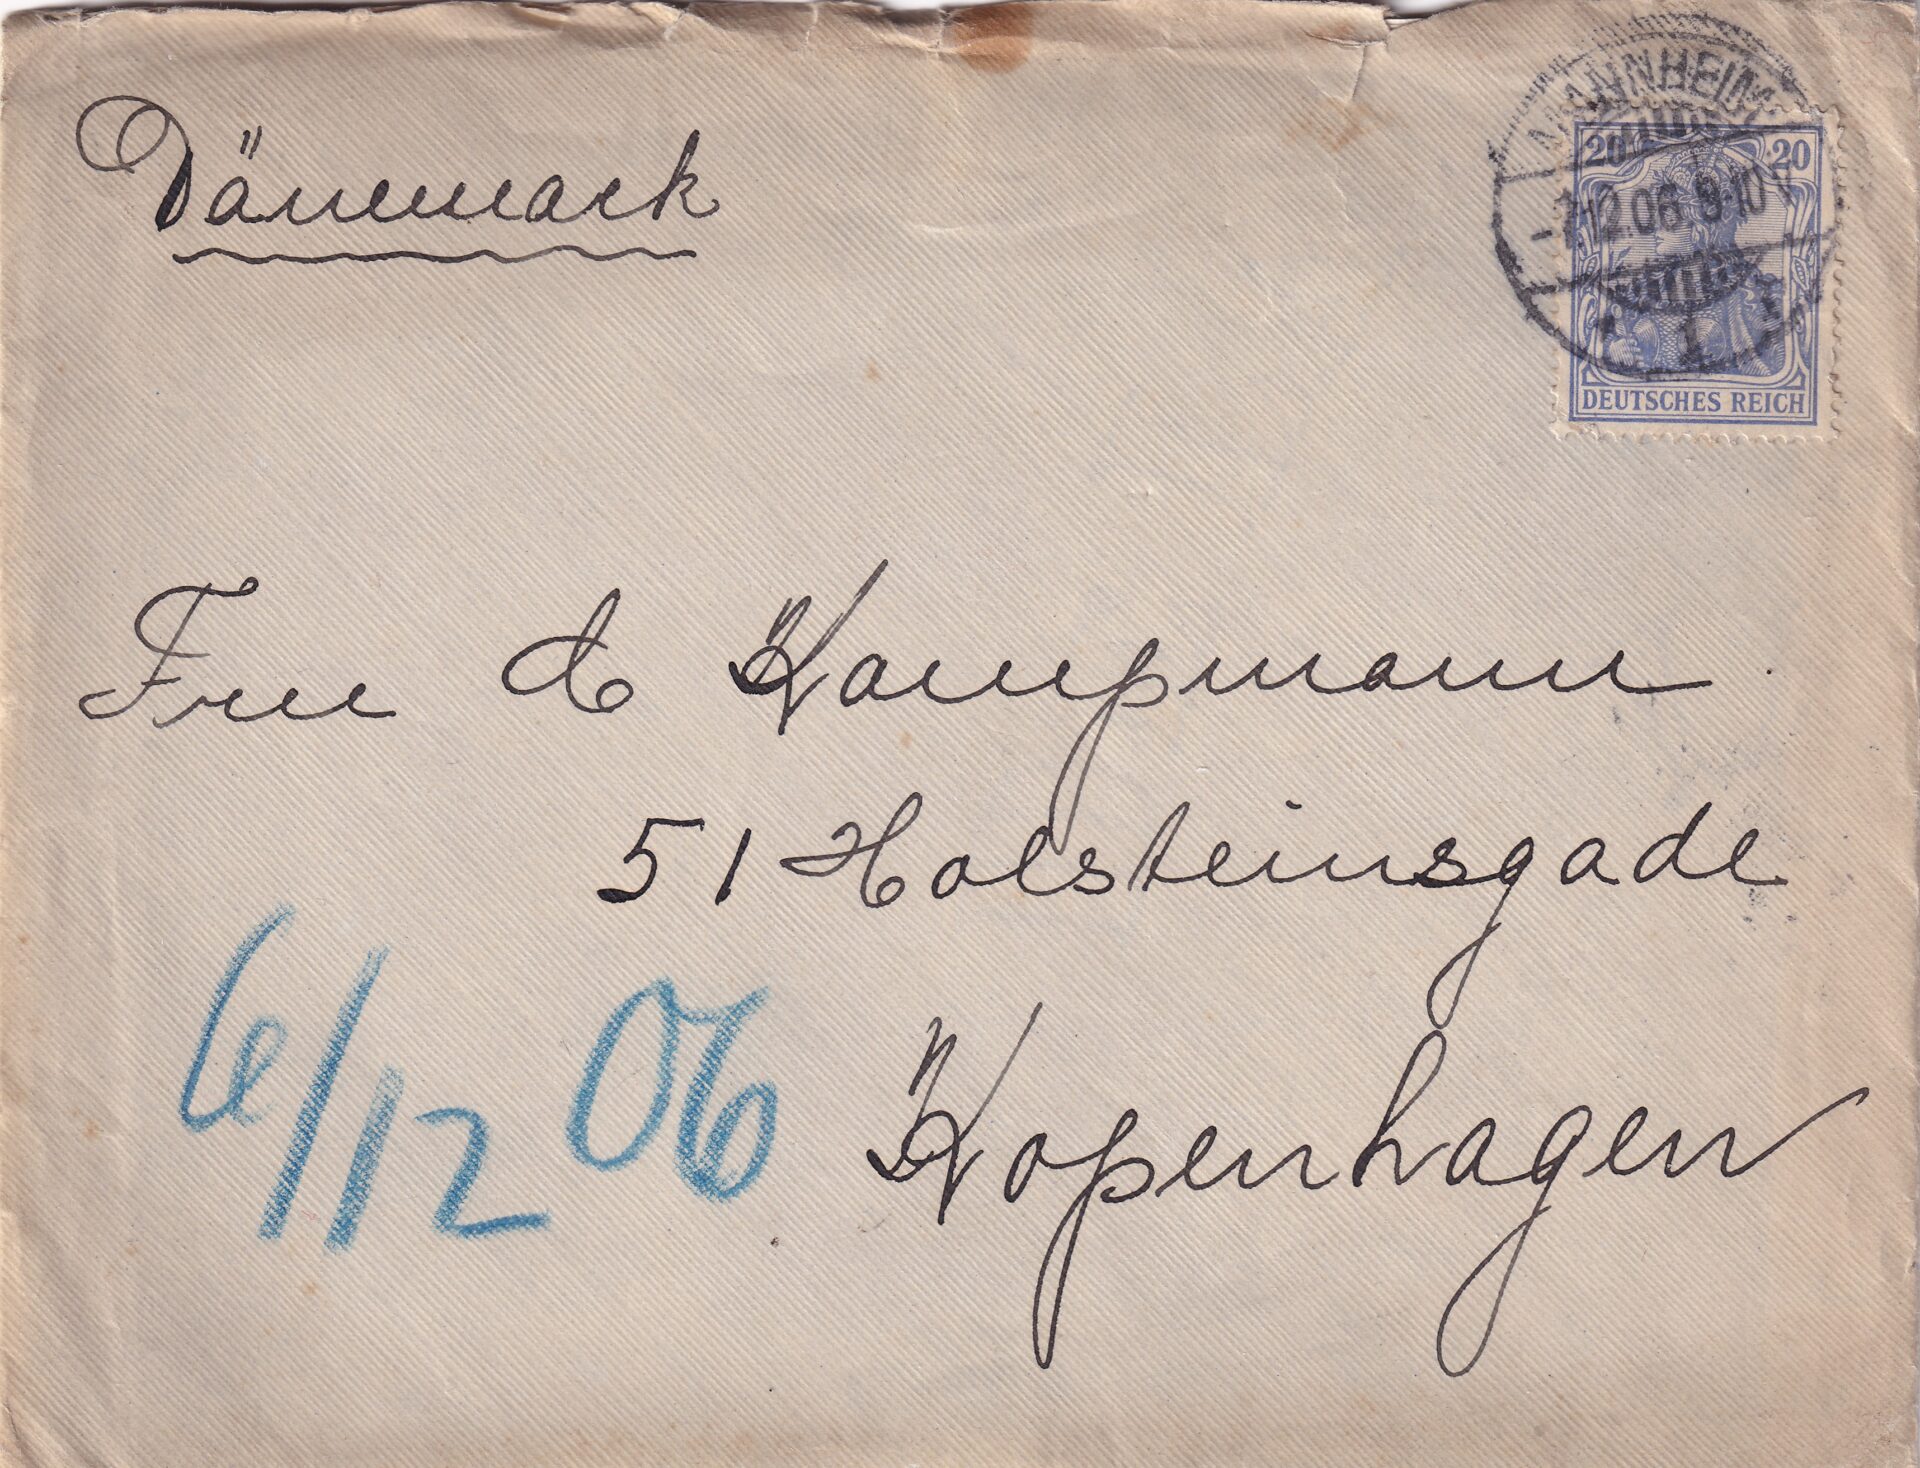 Dänemark
MANNHEIM
-7.12.06 9-10V
1
20 20
DEUTSCHES REICH
Frue d Kampmann
51 Holsteinsgade
Kopenhagen
6/12 06